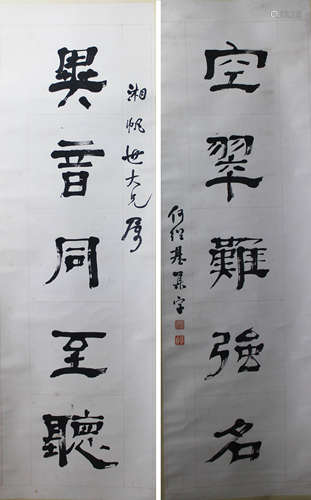 空翠難強名
何紹基集字
湘帆世大兄属
異音同至聽